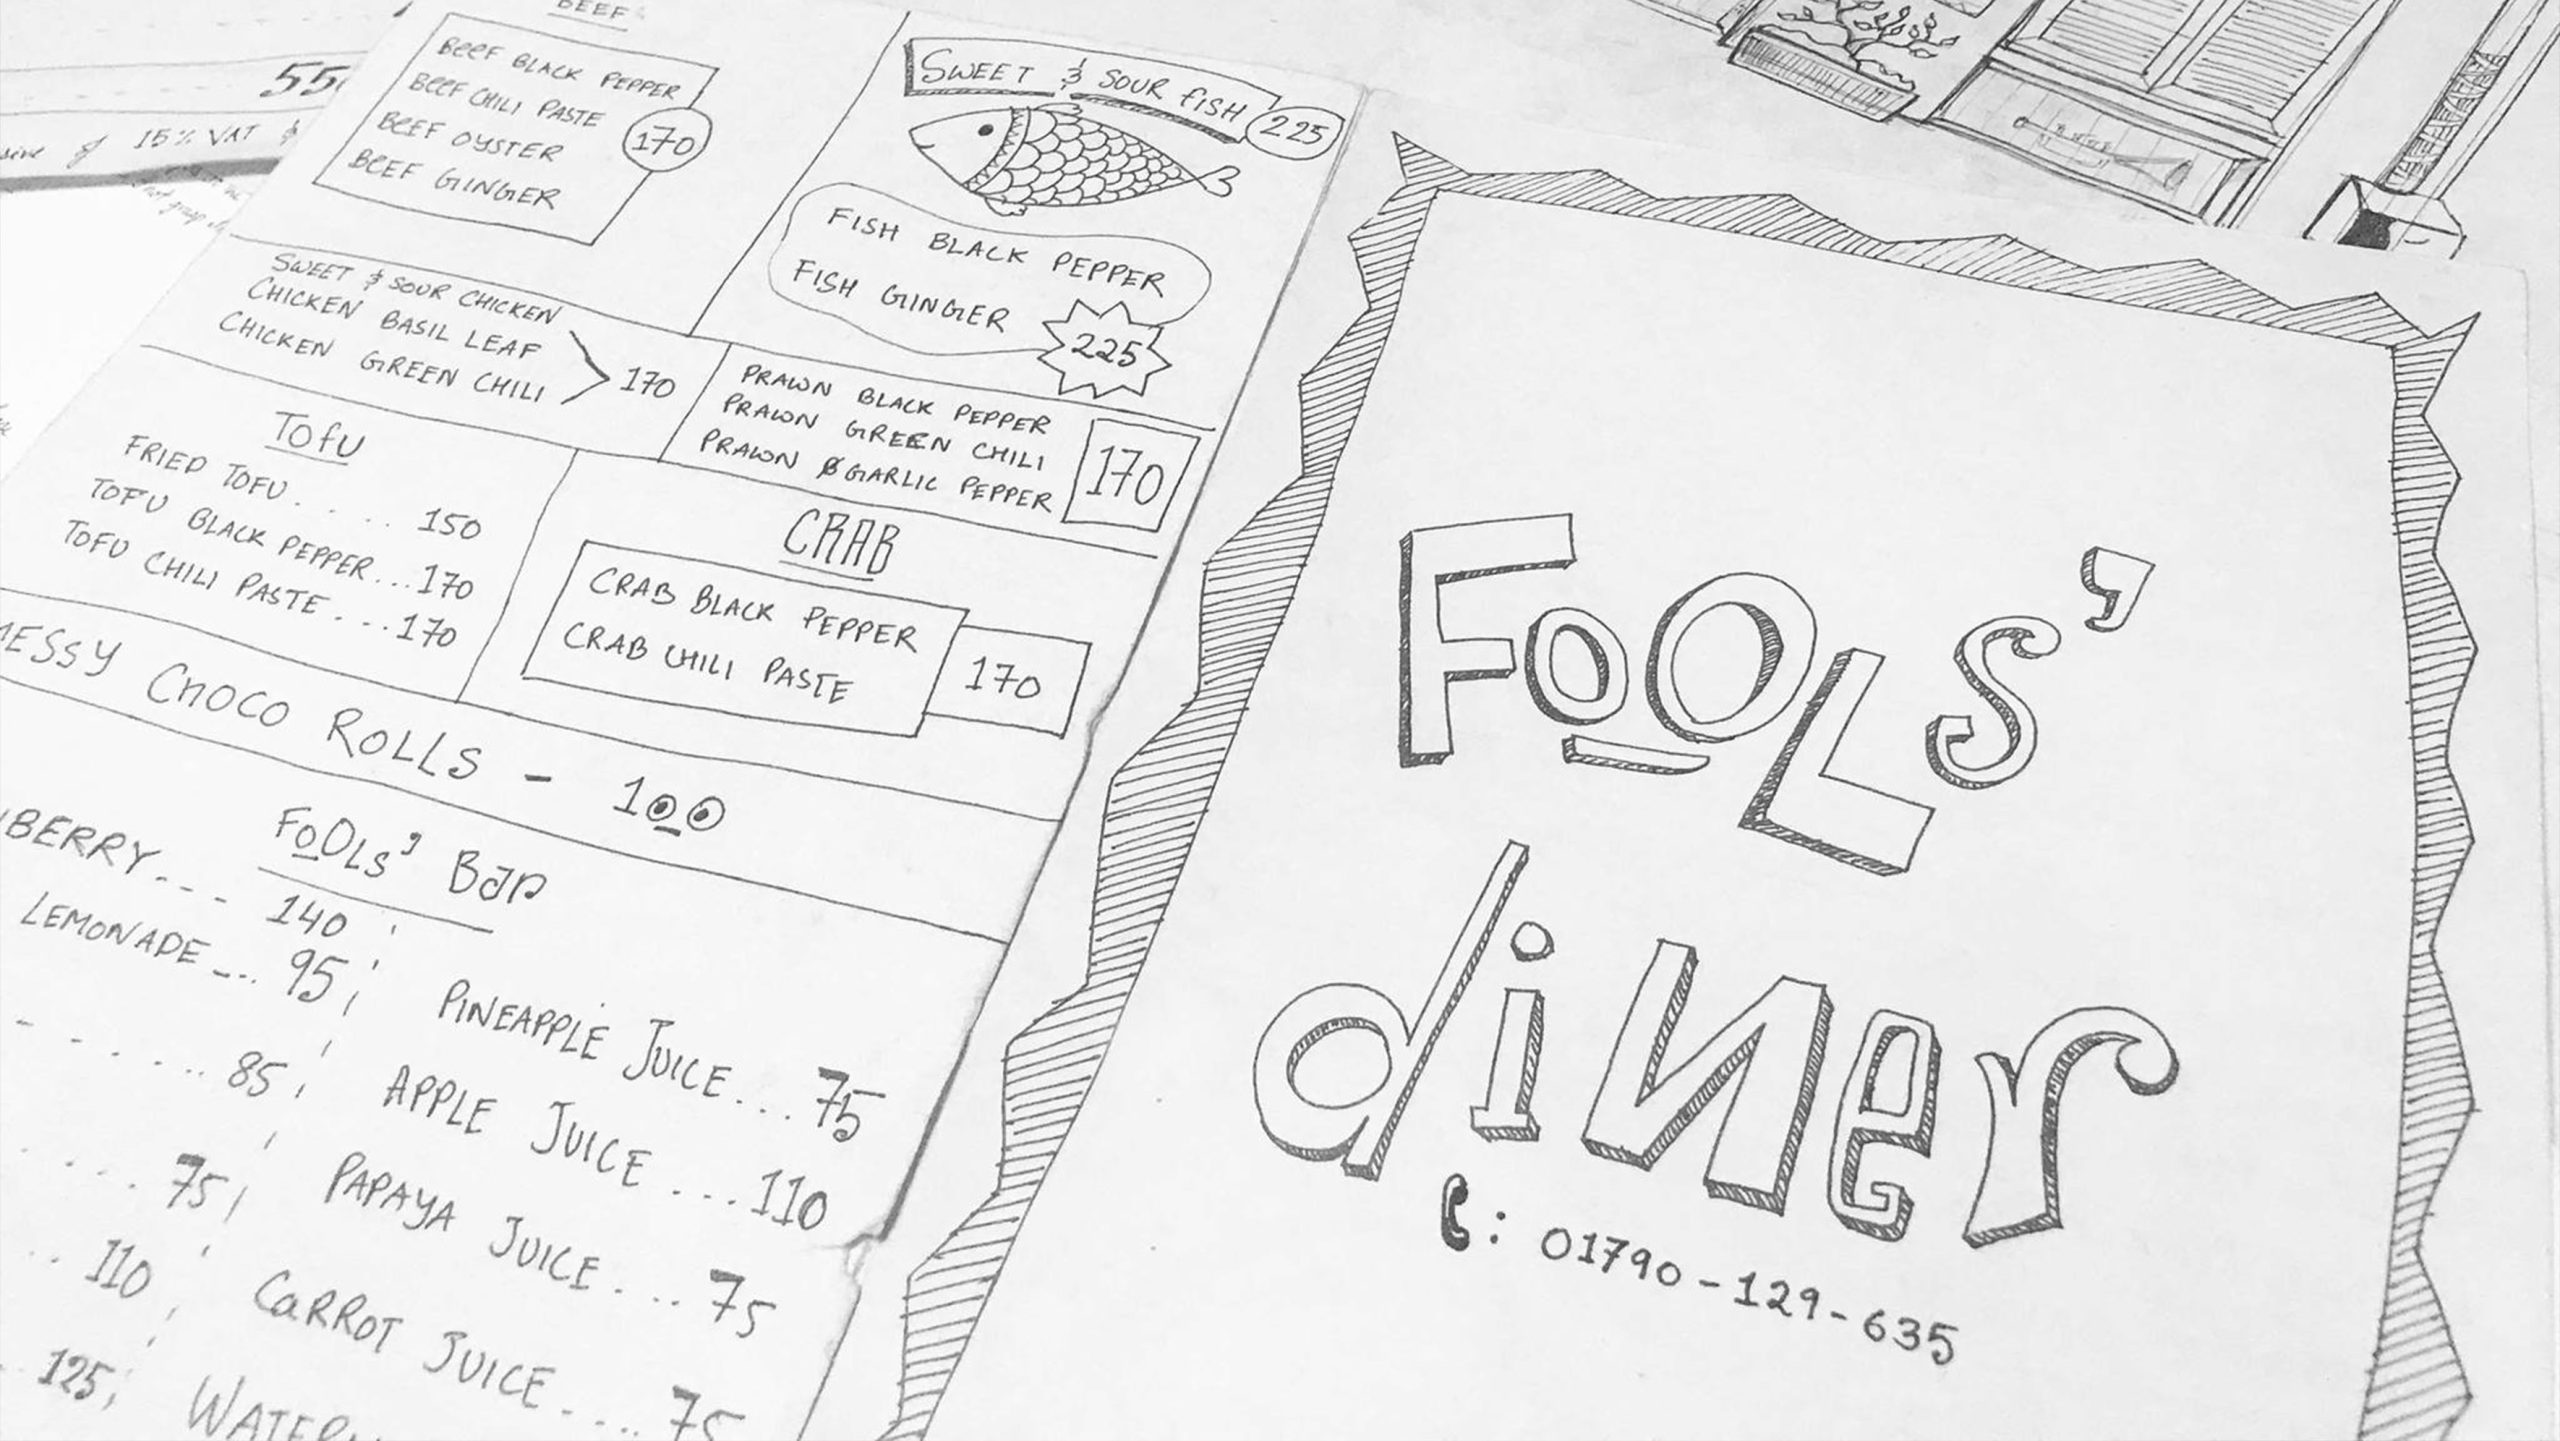 550
15% VAT &
BEEF
BEEF BLACK PEPPER
BEEF CHILI PASTE
BEEF OYSTER
BEEF GINGER
170
SWEET & SOUR FISH
225
FISH BLACK PEPPER
FISH GINGER
225
SWEET & SOUR CHICKEN
CHICKEN BASIL LEAF
CHICKEN GREEN CHILI
170
PRAWN BLACK PEPPER
PRAWN GREEN CHILI
PRAWN GARLIC PEPPER
170
TOFU
FRIED TOFU..... 150
TOFU BLACK PEPPER...170
TOFU CHILI PASTE....170
CRAB
CRAB BLACK PEPPER
CRAB CHILI PASTE
170
MESSY CHOCO ROLLS - 100
FOOLS' Bar
BERRY--- 140
LEMONADE --- 95
85
75
110
125
PINEAPPLE JUICE... 75
APPLE JUICE ...110
PAPAYA JUICE.... 75
CARROT JUICE.... 75
FOOLS'
diner
: 01790-129-635